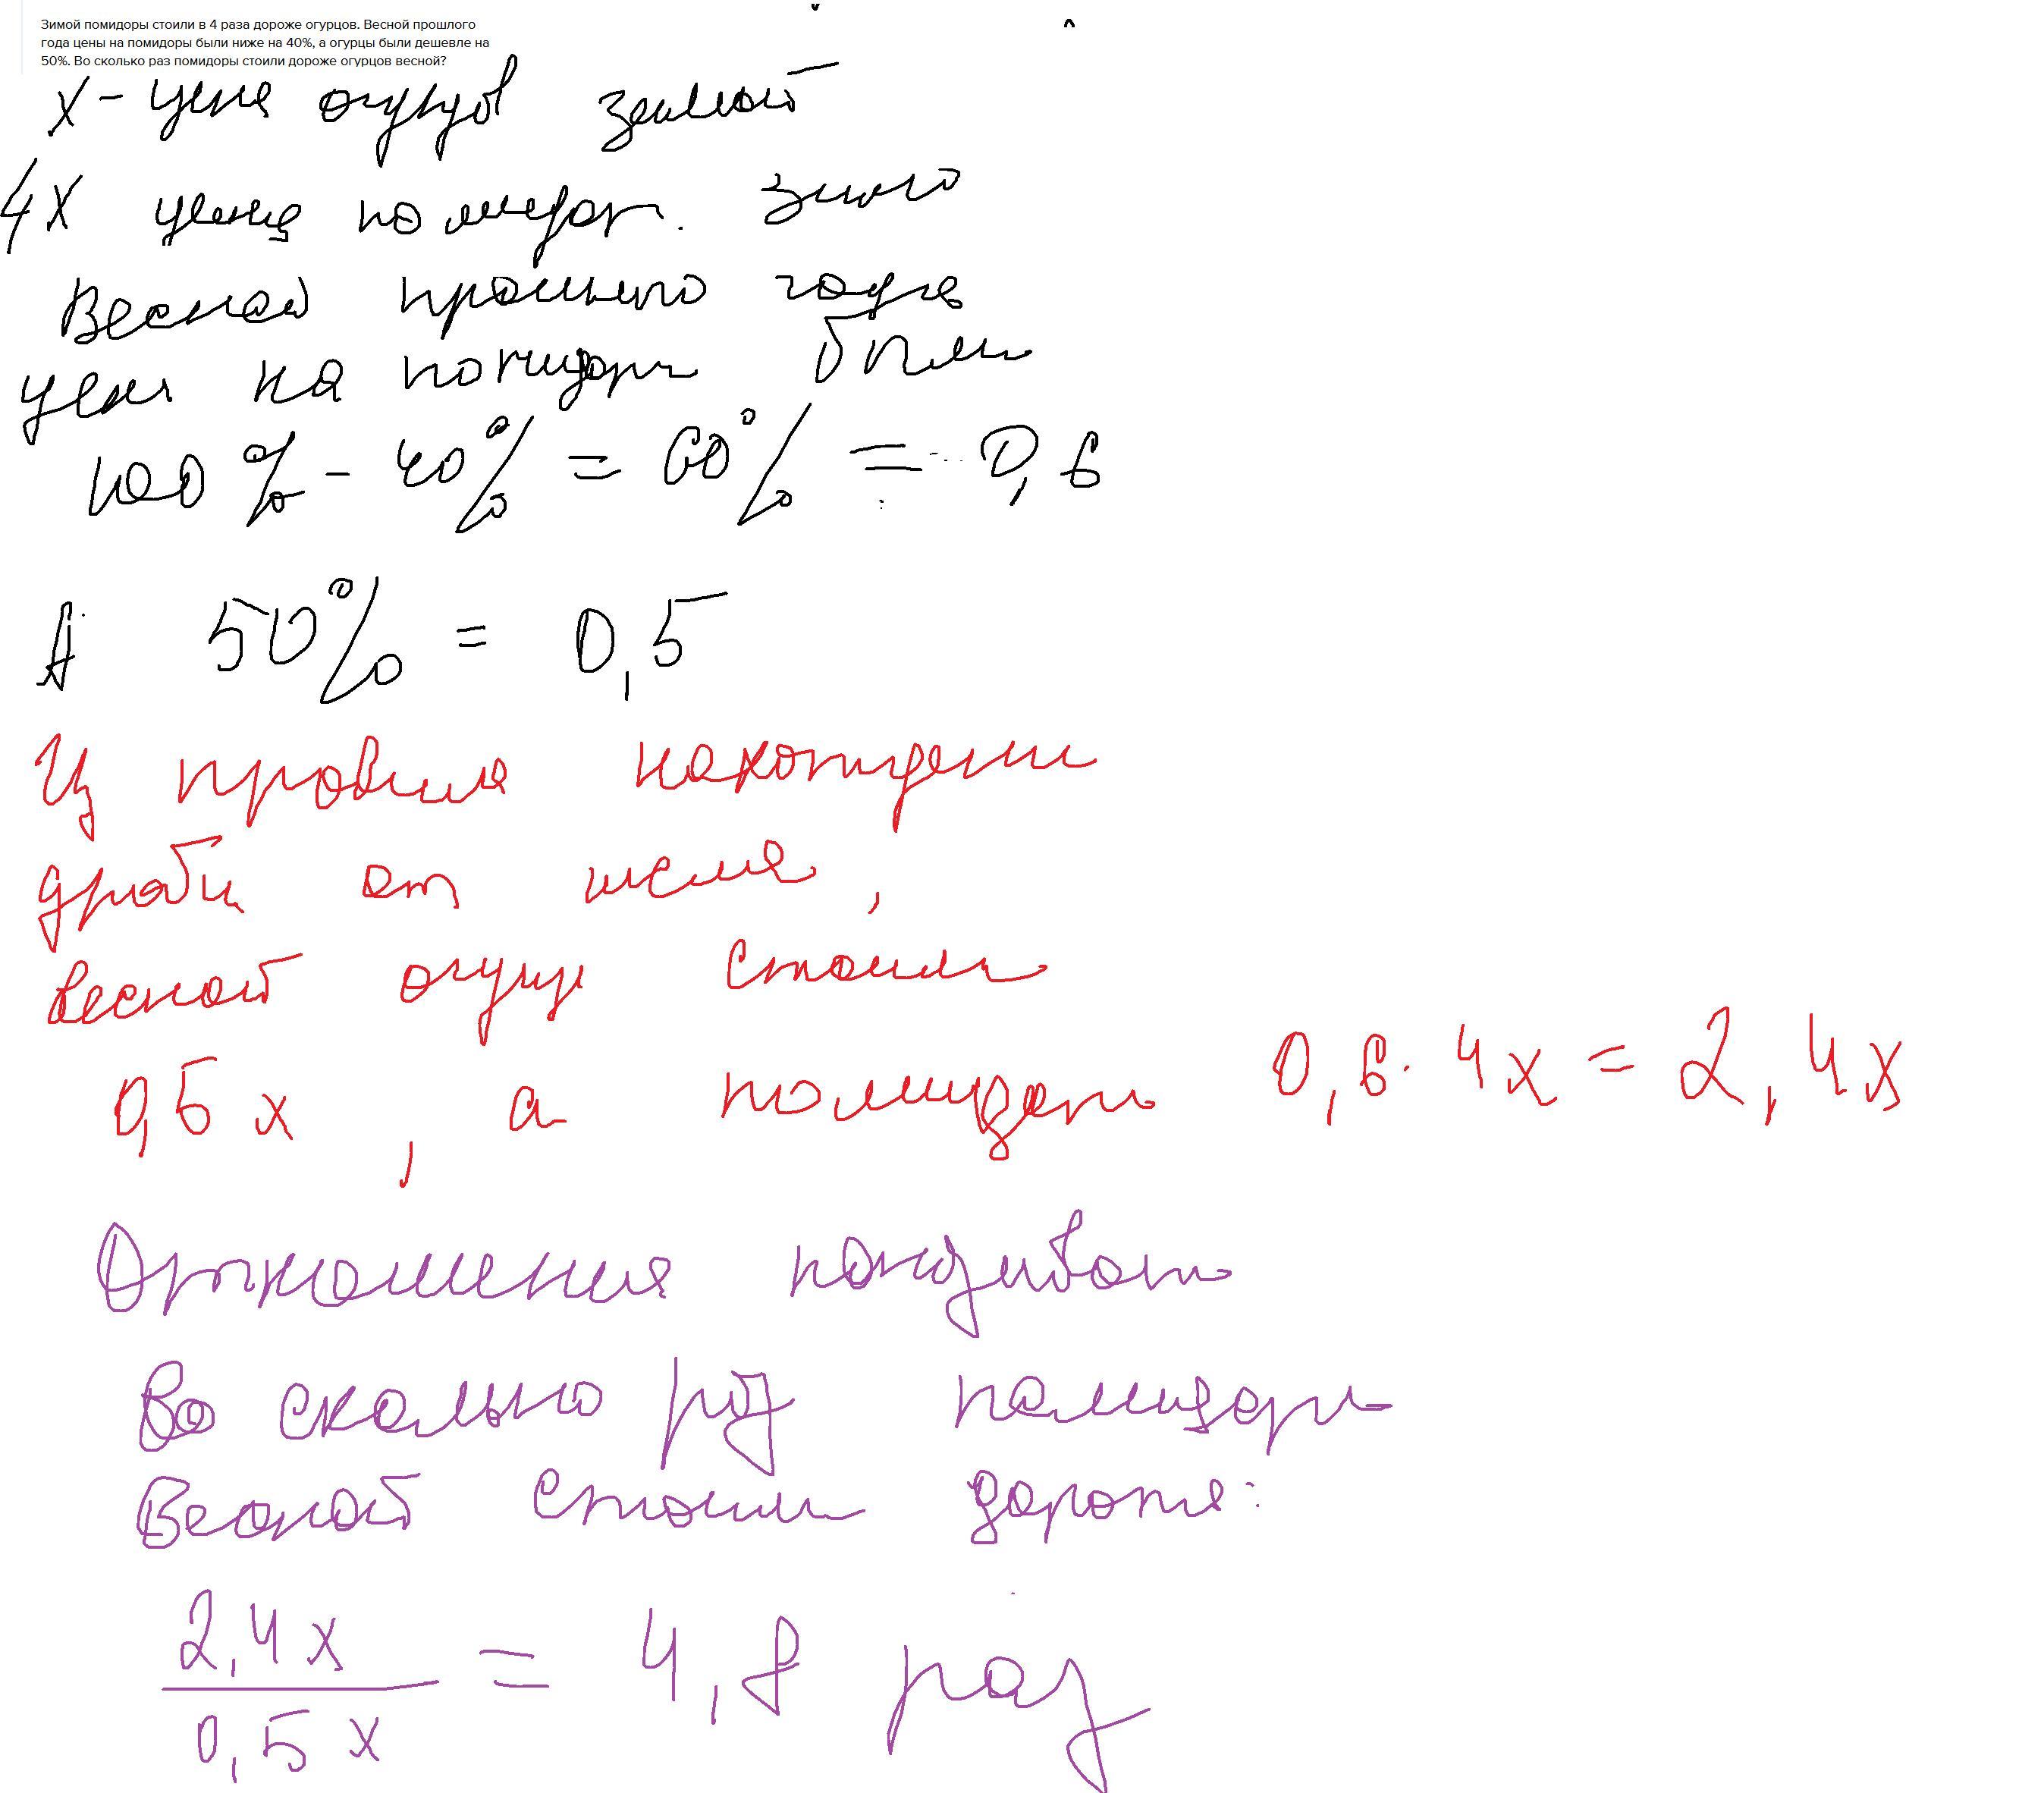 Зимой помидоры стоили в 4 раза дороже огурцов. Весной прошлого
года цены на помидоры были ниже на 40%, а огурцы были дешевле на
50%. Во сколько раз помидоры стоили дороже огурцов весной?
x - цена огурцов зимой
4x цена помидор. зимо
Весной прошлого года
цены на помидоры были
100% - 40% = 60% = 0,6
А 50% = 0,5
Из правила нахождения
дроби от числа,
весной огурц стоили
0,5x, а помидоры 0,6·4x = 2,4x
Отношения показывают
Во сколько раз помидоры
Весной стоили дороже:
2,4x
0,5x = 4,8 раз